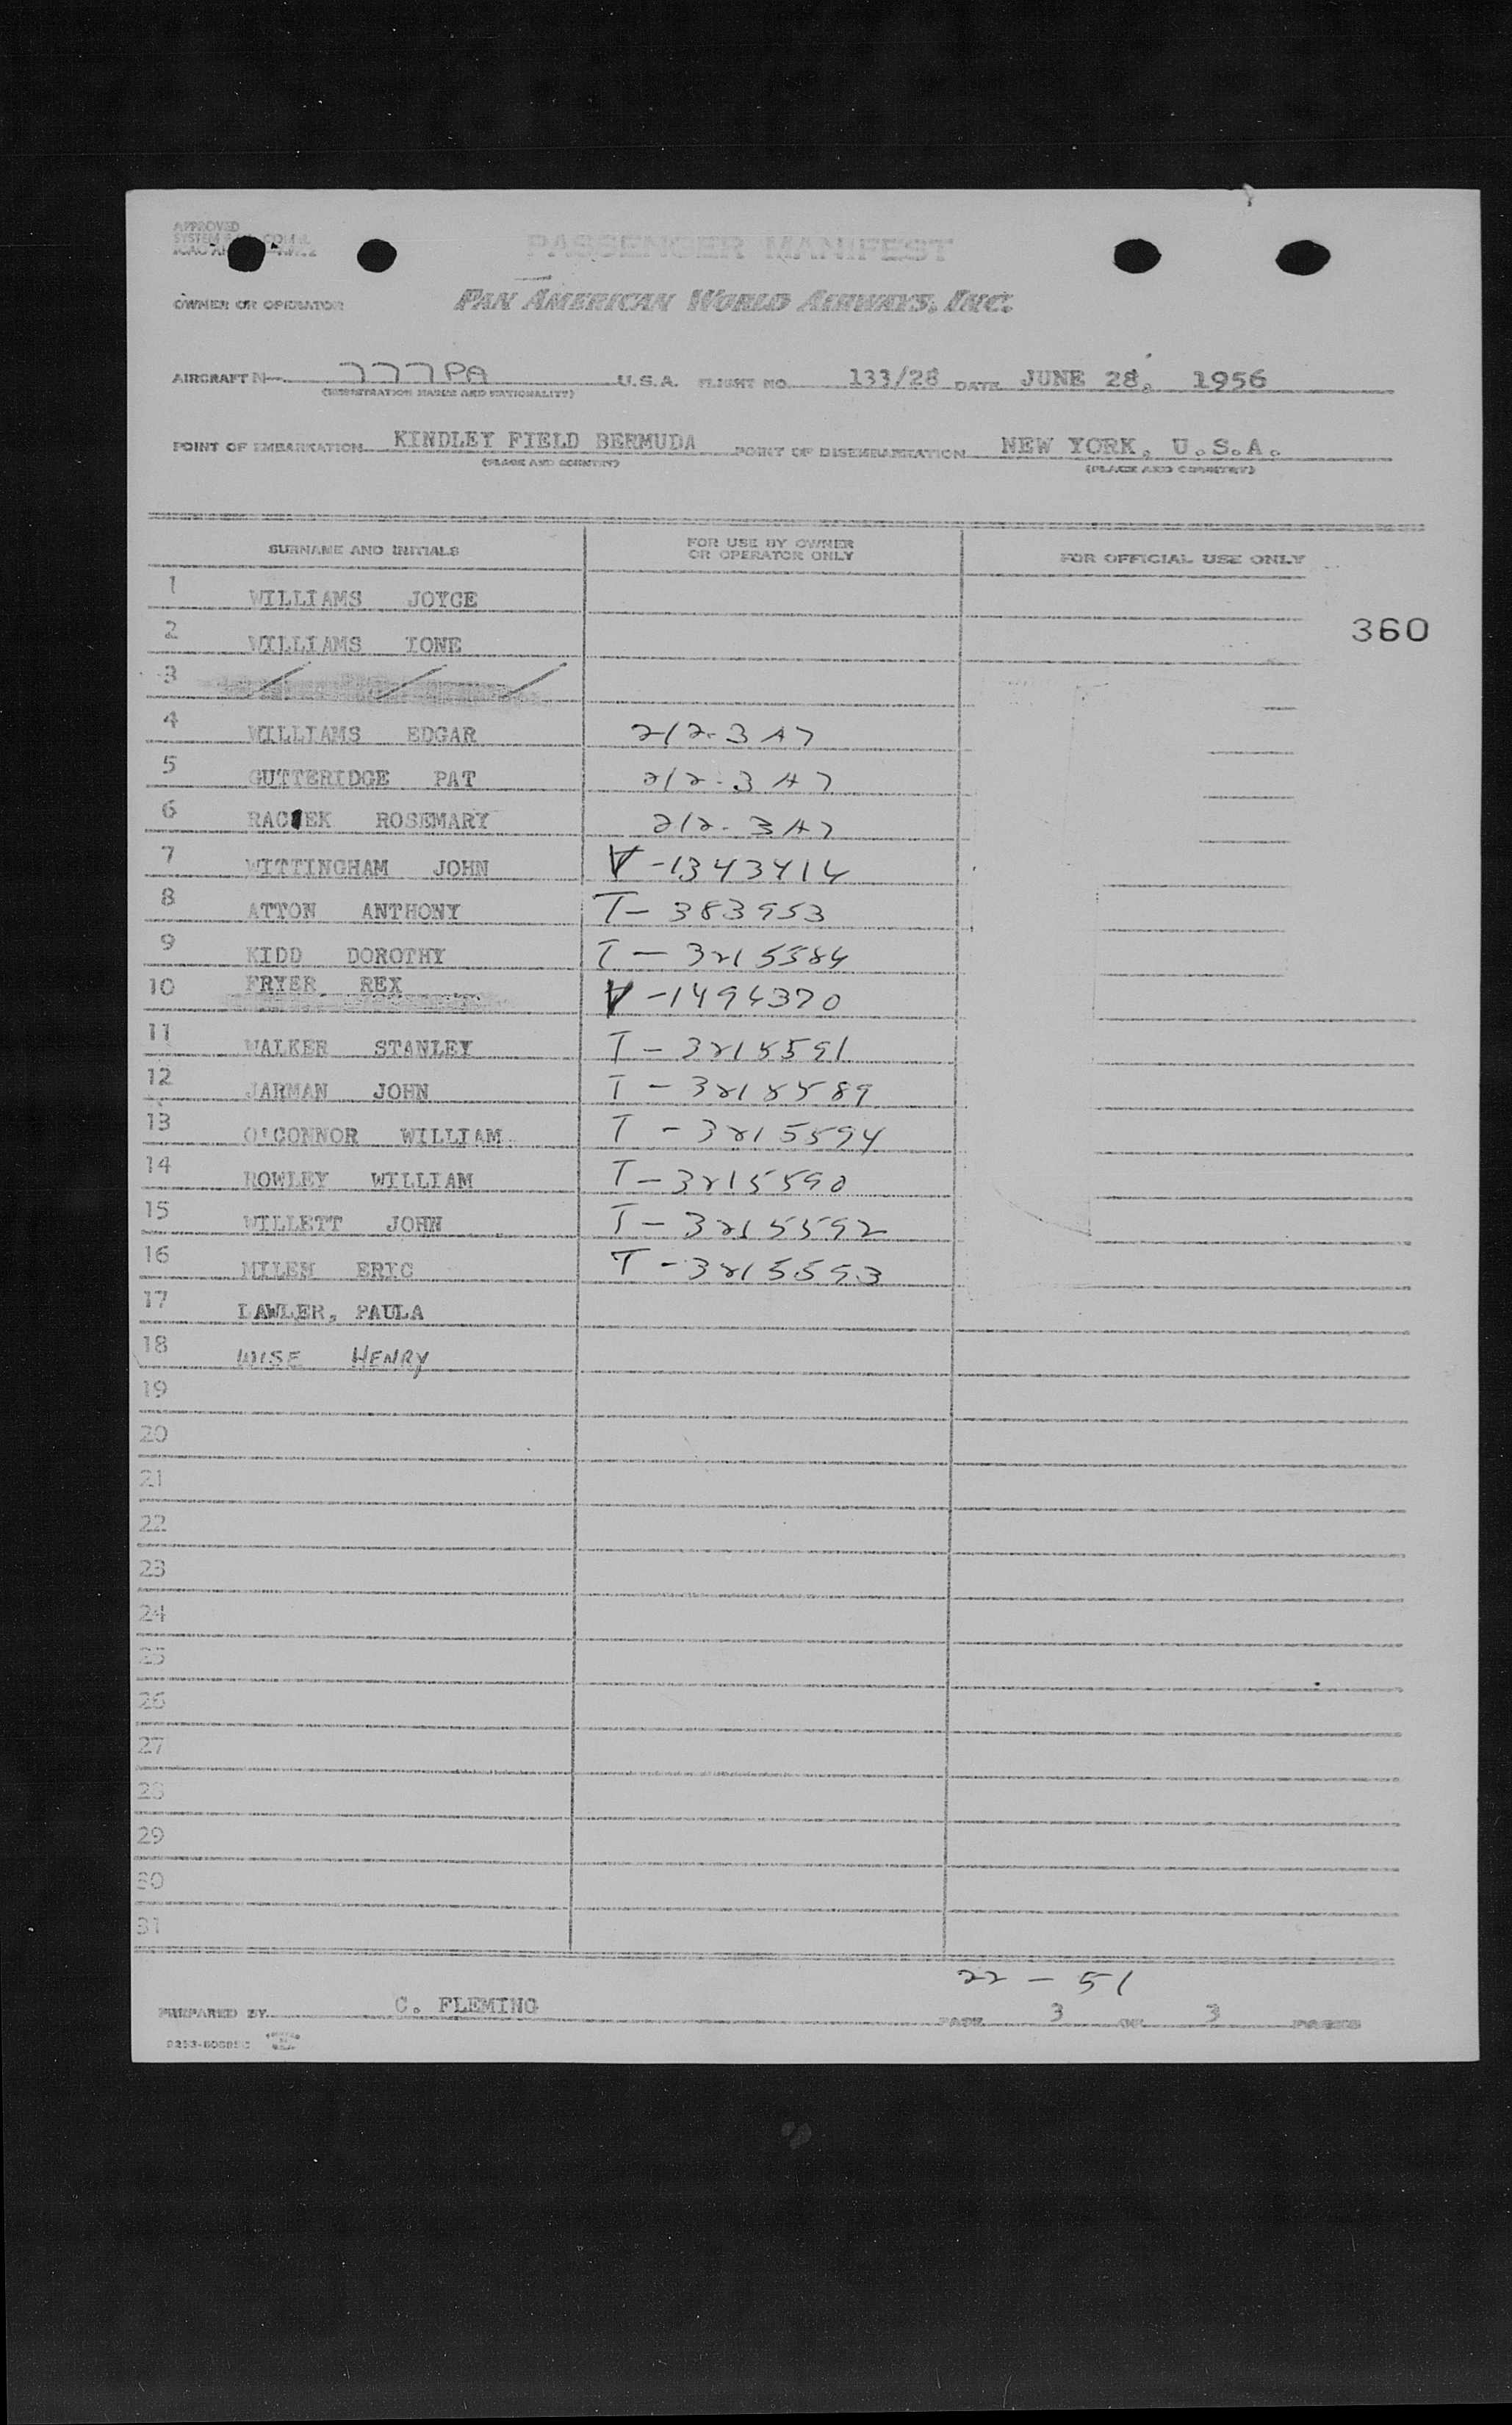 APPROVED
PASSENGER MANIFEST
OWNER OR OPERATOR PAN AMERICAN WORLD AIRWAYS, INC.
AIRCRAFT N- 777PA U.S.A. FLIGHT NO. 133/28 DATE JUNE 28, 1956
(REGISTRATION MARKS AND NATIONALITY)
POINT OF EMBARKATION KINDLEY FIELD BERMUDA POINT OF DISEMBARKATION NEW YORK, U.S.A.
(PLACE AND COUNTRY) (PLACE AND COUNTRY)
SURNAME AND INITIALS FOR USE BY OWNER OR OPERATOR ONLY FOR OFFICIAL USE ONLY
1 WILLIAMS JOYCE
2 WILLIAMS IONE 360
3
4 WILLIAMS EDGAR 212-3A7
5 GUTTERIDGE PAT 212-3A7
6 RAC EK ROSEMARY 212-3A7
7 WITTINGHAM JOHN V-1343414
8 ATTON ANTHONY T-383953
9 KIDD DOROTHY T-3215584
10 FRYER REX V-1494370
11 WALKER STANLEY T-3215591
12 JARMAN JOHN T-3215589
13 O'CONNOR WILLIAM T-3215594
14 ROWLEY WILLIAM T-3215590
15 WILLETT JOHN T-3215592
16 MILEM ERIC T-3215593
17 LAWLER, PAULA
18 WISE HENRY
19
20
21
22
23
24
25
26
27
28
29
30
31
22-51
PREPARED BY C. FLEMING PAGE 3 OF 3 PAGES